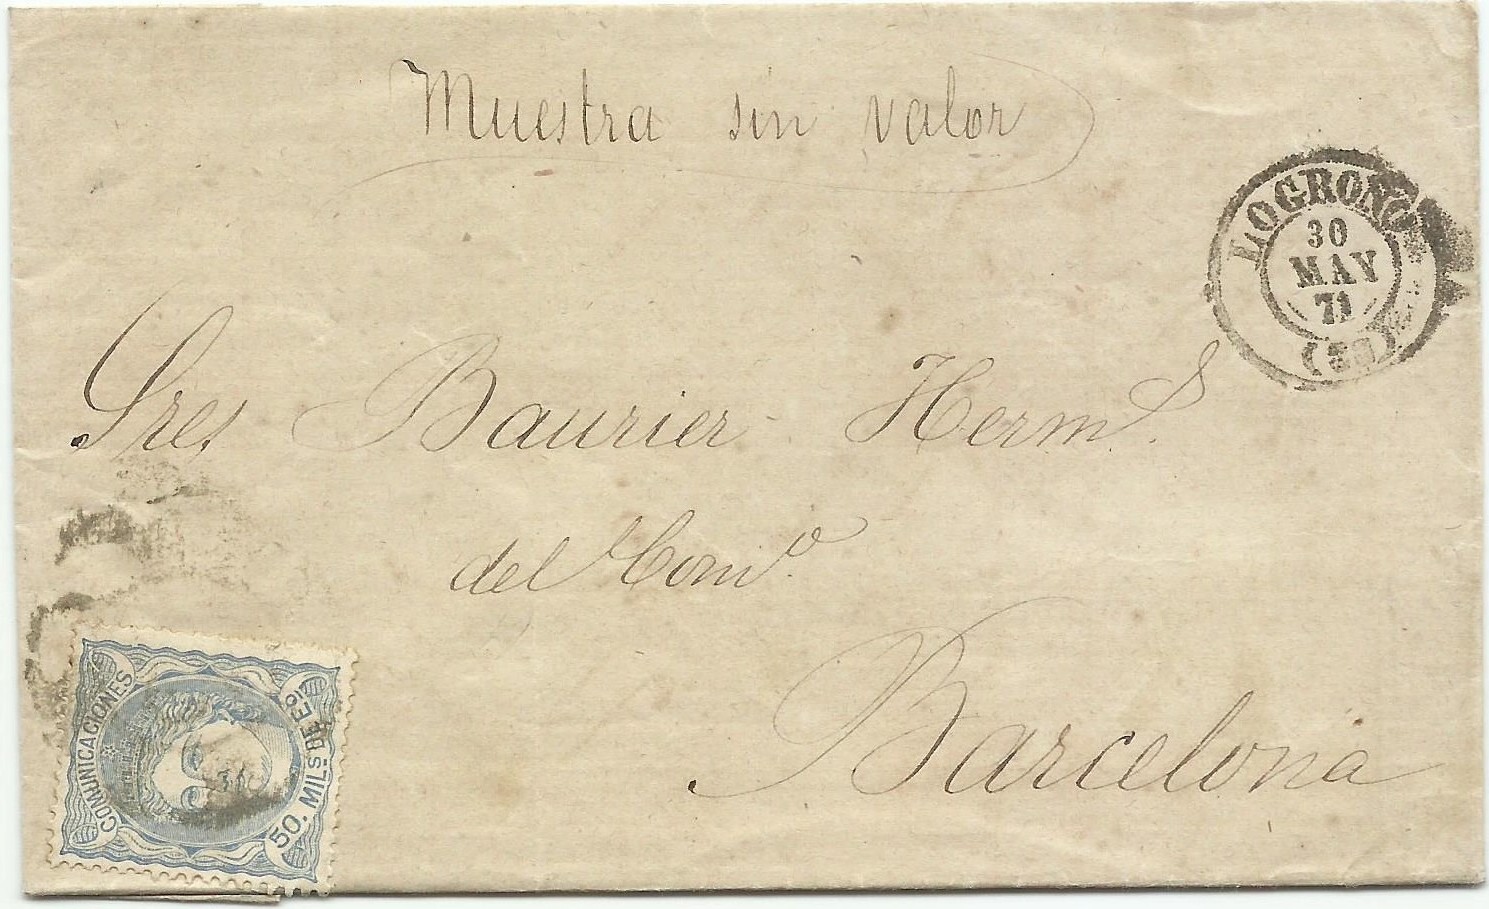 Muestra sin valor
LOGROÑO
30
MAY
71
Sres Baurier Herms.
del Como.
Barcelona
COMUNICACIONES
50. MILS. DE Eo.